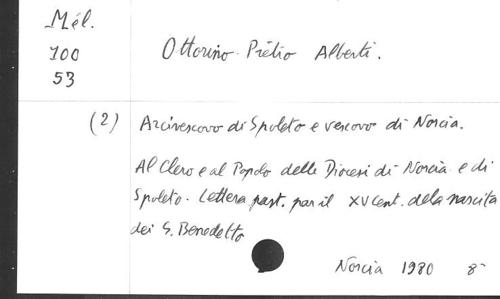 Mél.
100
53
Ottorino Pietro Alberti.
(2) Arcivescovo di Spoleto e vescovo di Norcia.
Al Clero e al Popolo delle Diocesi di Norcia e di
Spoleto. Lettera past. par il XV cent. della nascita
dei S. Benedetto
Norcia 1980 8°